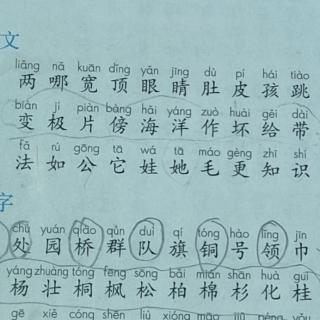 文
liǎng nǎ kuān dǐng yǎn jīng dù pí hái tiào
两 哪 宽 顶 眼 睛 肚 皮 孩 跳
biàn jí piàn bàng hǎi yáng zuò huài gěi dài
变 极 片 傍 海 洋 作 坏 给 带
fǎ rú gōng tā wá tā máo gèng zhī shí
法 如 公 它 娃 她 毛 更 知 识
字
chù yuán qiáo qún duì qí tóng hào lǐng jīn
处 园 桥 群 队 旗 铜 号 领 巾
yáng zhuàng tóng fēng sōng bǎi mián shān huà guì
杨 壮 桐 枫 松 柏 棉 杉 化 桂
gē xiě cóng shēn liù xióng māo jiǔ péng